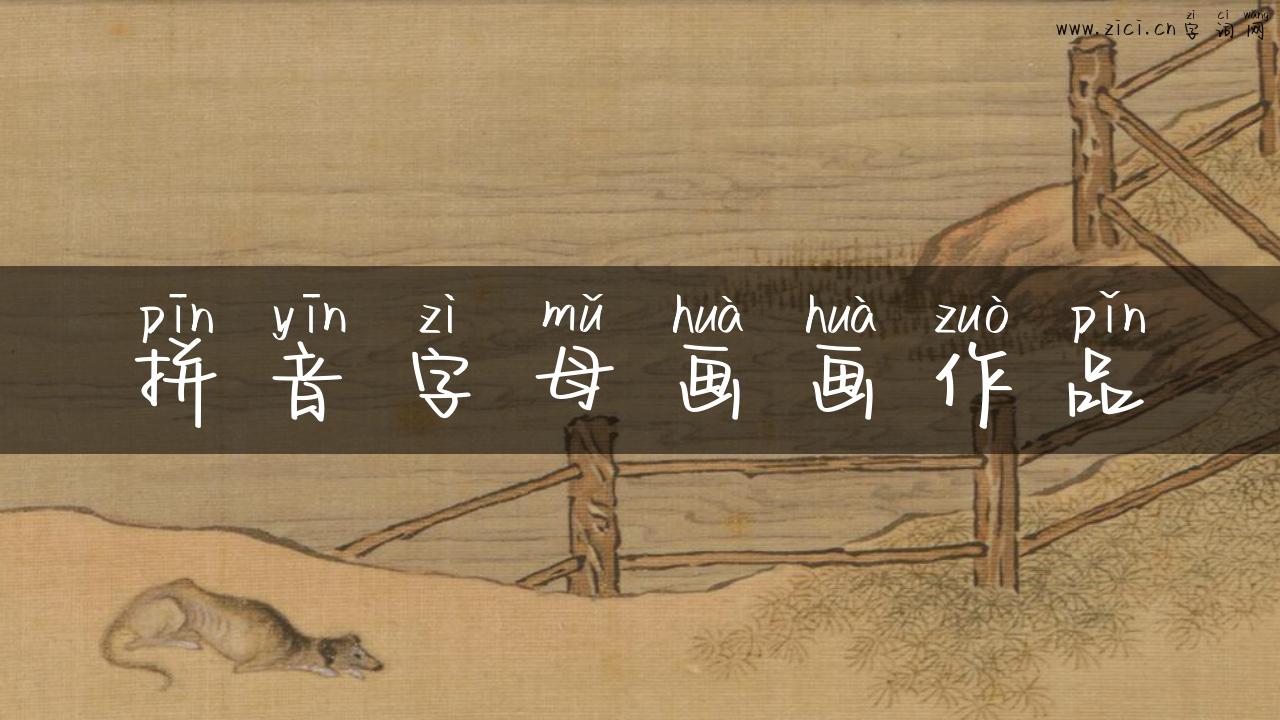 zì cí wǎng
www.zici.cn字词网
pīn yīn zì mǔ huà huà zuò pǐn
拼音字母画画作品